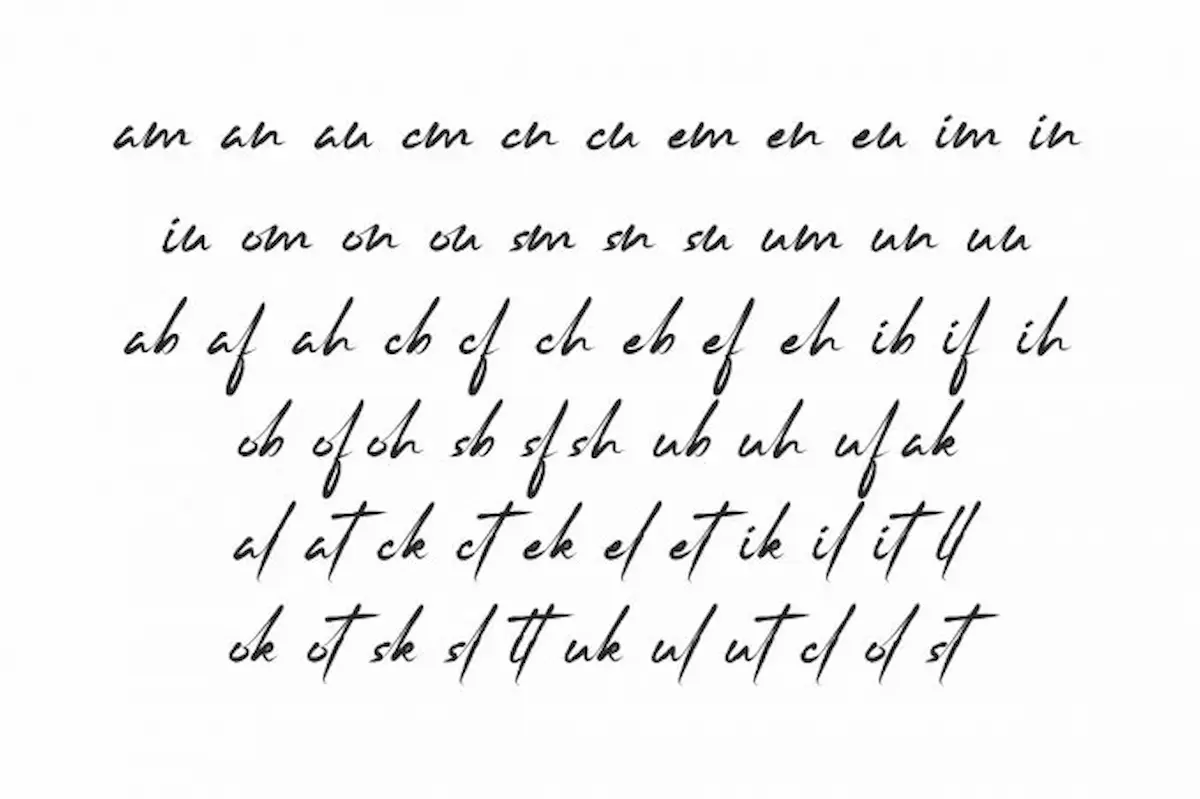 am an au cm cn cu em en eu im in
iu om on ou sm sn su um un uu
ab af ah cb cf ch eb ef eh ib if ih
ob of oh sb sf sh ub uh uf ak
al at ck ct ek el et ik il it ll
ok ot sk sl tt uk ul ut cl ol st